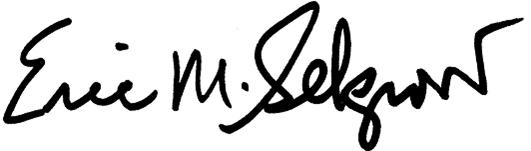 Eric M. Selgrow